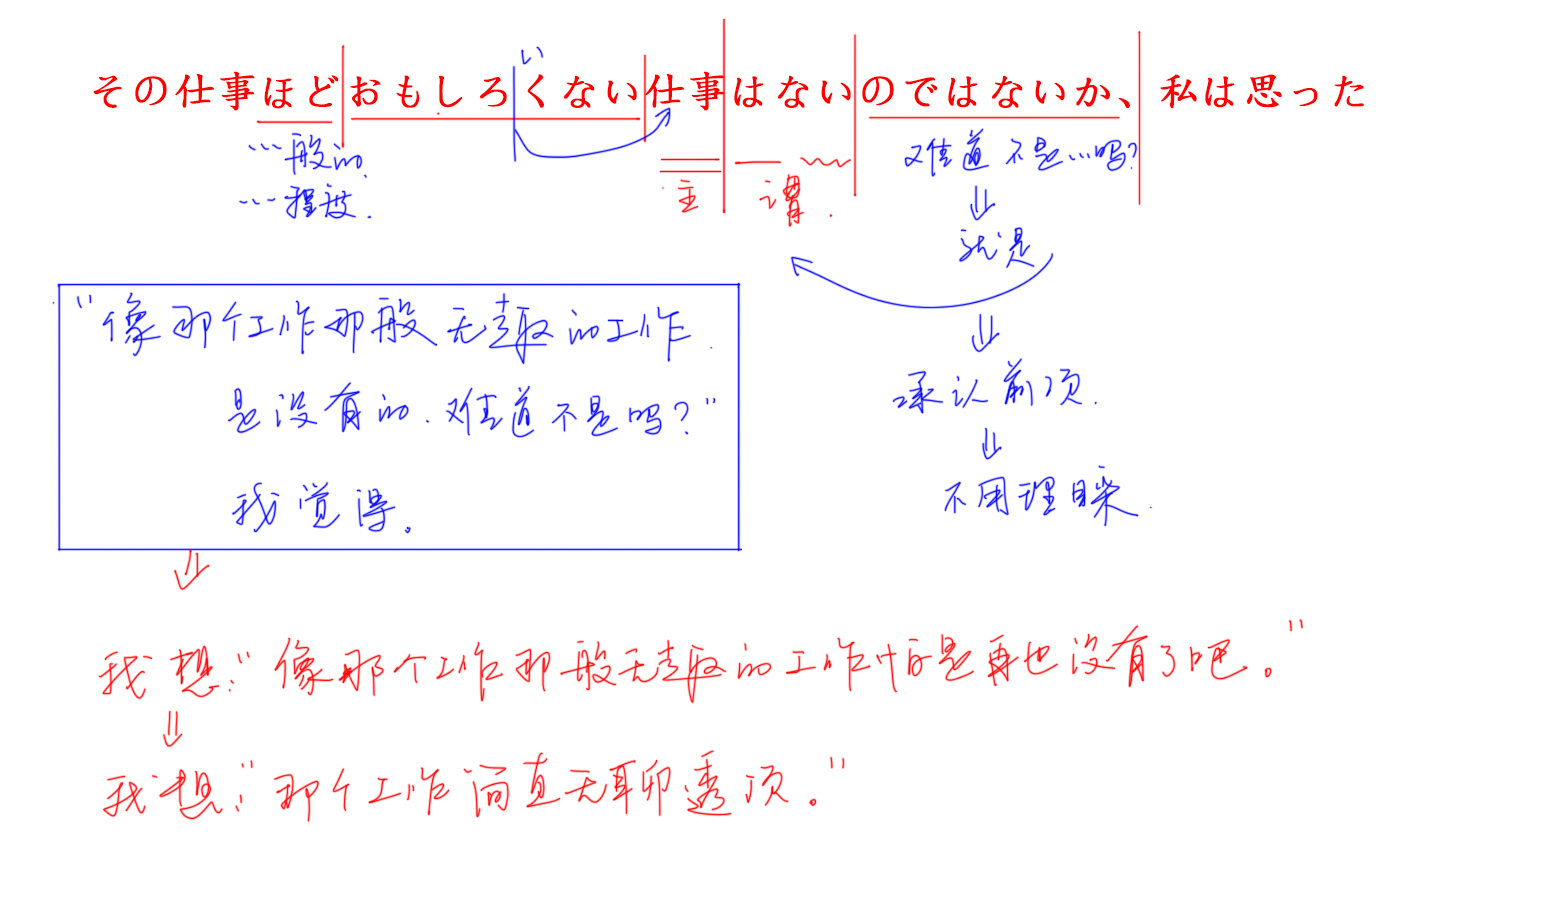 い
その仕事ほどおもしろくない仕事はないのではないか、私は思った
…般的.
…程度.
主
谓.
难道不是…吗?
就是
"像那个工作那般无趣的工作.
是没有的.难道不是吗?"
我觉得。
承认前项.
不用理睬.
我想:"像那个工作那般无趣的工作怕是再也没有了吧。"
我想:"那个工作简直无聊透顶。"